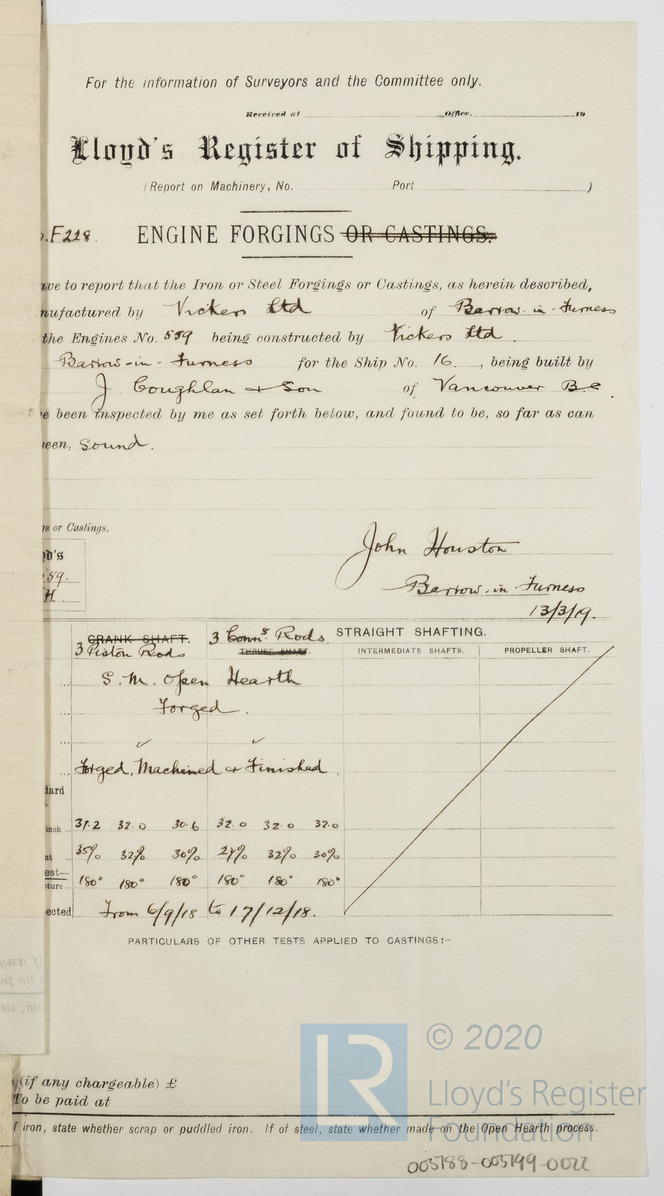 For the information of Surveyors and the Committee only.
Received at Office. 19
Lloyd's Register of Shipping.
(Report on Machinery, No. Port )
F228. ENGINE FORGINGS OR CASTINGS.
ve to report that the Iron or Steel Forgings or Castings, as herein described,
nufactured by Vickers Ltd of Barrow-in-Furness
the Engines No. 559 being constructed by Vickers Ltd.
Barrow-in-Furness for the Ship No. 16, being built by
J. Coughlan & Son of Vancouver B.C.
e been inspected by me as set forth below, and found to be, so far as can
een, sound.
gs or Castings.
yd's
59.
H.
John Houston
Barrow-in-Furness
13/3/19.
CRANK SHAFT. 3 Conng Rods. STRAIGHT SHAFTING.
3 Piston Rods THRUST SHAFT. INTERMEDIATE SHAFTS. PROPELLER SHAFT.
S. M. Open Hearth
Forged.
Forged, Machined & Finished.
dard
inch 31.2 32.0 30.6 32.0 32.0 32.0
nt 35% 32% 30% 27% 32% 30%
est—
ture 180° 180° 180° 180° 180° 180°
ected From 6/9/18 to 17/12/18.
PARTICULARS OF OTHER TESTS APPLIED TO CASTINGS:—
© 2020
Lloyd's Register
Foundation
(if any chargeable) £
To be paid at
f iron, state whether scrap or puddled iron. If of steel, state whether made on the Open Hearth process.
003188-003199-0022